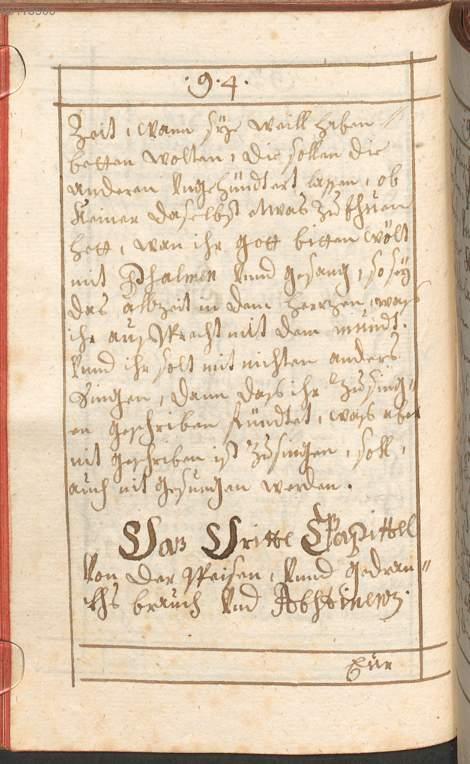 · 9 · 4 ·
Zeit, wann sÿe weill haben
betten wolten, die sollen die
anderen Ungehündtert lassen, ob
Keiner daselbst etwas zu thuen
hett, wan ihr gott bitten wölt
mit Psalmen Unnd gesang, so seÿ
das albzeit in dem Herrzen, wass
ihr auss Sprecht mit dem mundt.
Unnd ihr solt mit nichten anders
Singen, dann dass ihr Zusing=
en geschriben fündtet, wass aber
nit geschriben ist Zusingen, soll,
auch nit gesungen werden.
Das Dritte Capittel
Von der Speisen, Unnd gedran=
ckhs brauch Und Abstinentz.
Eür